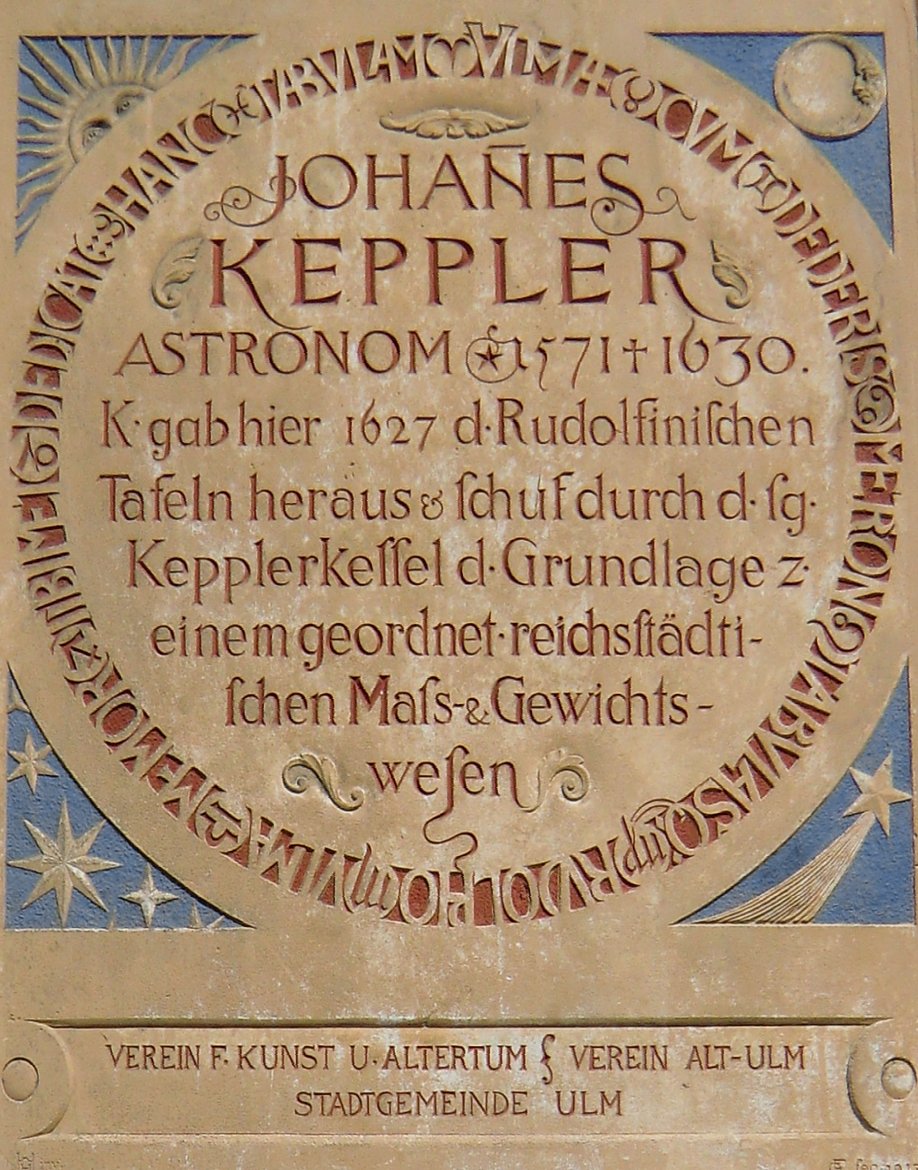 HANC TABVLAM VLMA CVM DEDERIS
RVDOLPHO VLMA MEMOR DEDICAT
JOHAN̄ES
KEPPLER
ASTRONOM 1571 † 1630.
K· gab hier 1627 d·Rudolfiniſchen
Tafeln heraus & ſchuf durch d·ſg·
Kepplerkeſſel d·Grundlage z·
einem geordnet·reichsſtädti-
ſchen Maſs-& Gewichts-
weſen
VEREIN F. KUNST U. ALTERTUM VEREIN ALT-ULM
STADTGEMEINDE ULM